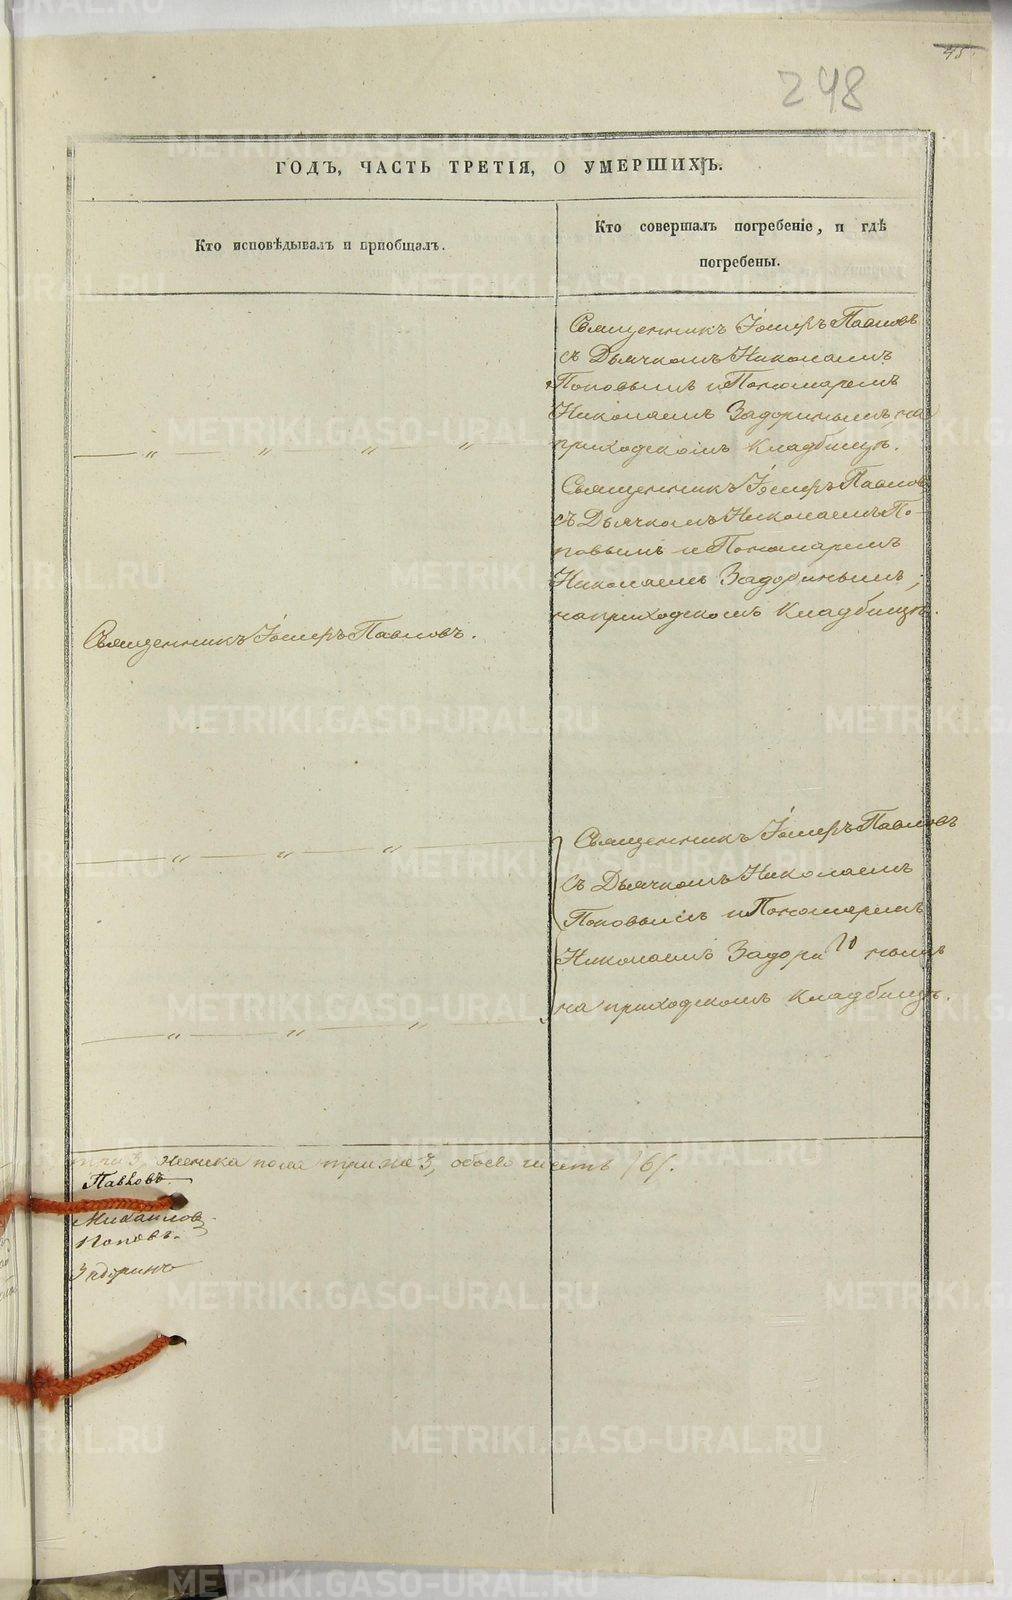 45
248
ГОДЪ, ЧАСТЬ ТРЕТІЯ, О УМЕРШИХЪ.
Кто исповѣдывалъ и пріобщалъ.
Кто совершалъ погребеніе, и гдѣ
погребены.
Священникъ Іосифъ Павловъ
съ Дьячкомъ Николаемъ
Поповымъ и Пономаремъ
Николаемъ Задоринымъ, на
приходскомъ кладбищѣ.
Священникъ Іосифъ Павловъ
съ Дьячкомъ Николаемъ По-
повымъ и Пономаремъ
Николаемъ Задоринымъ,
на приходскомъ кладбищѣ.
Священникъ Іосифъ Павловъ.
Священникъ Іосифъ Павловъ
съ Дьячкомъ Николаемъ
Поповымъ и Пономаремъ
Николаемъ Задоринымъ
на приходскомъ кладбищѣ.
три 3, женска пола три 3, обоего шесть /6/.
Павловъ
Михаиловъ
Поповъ.
Задоринъ
METRIKI.GASO-URAL.RU